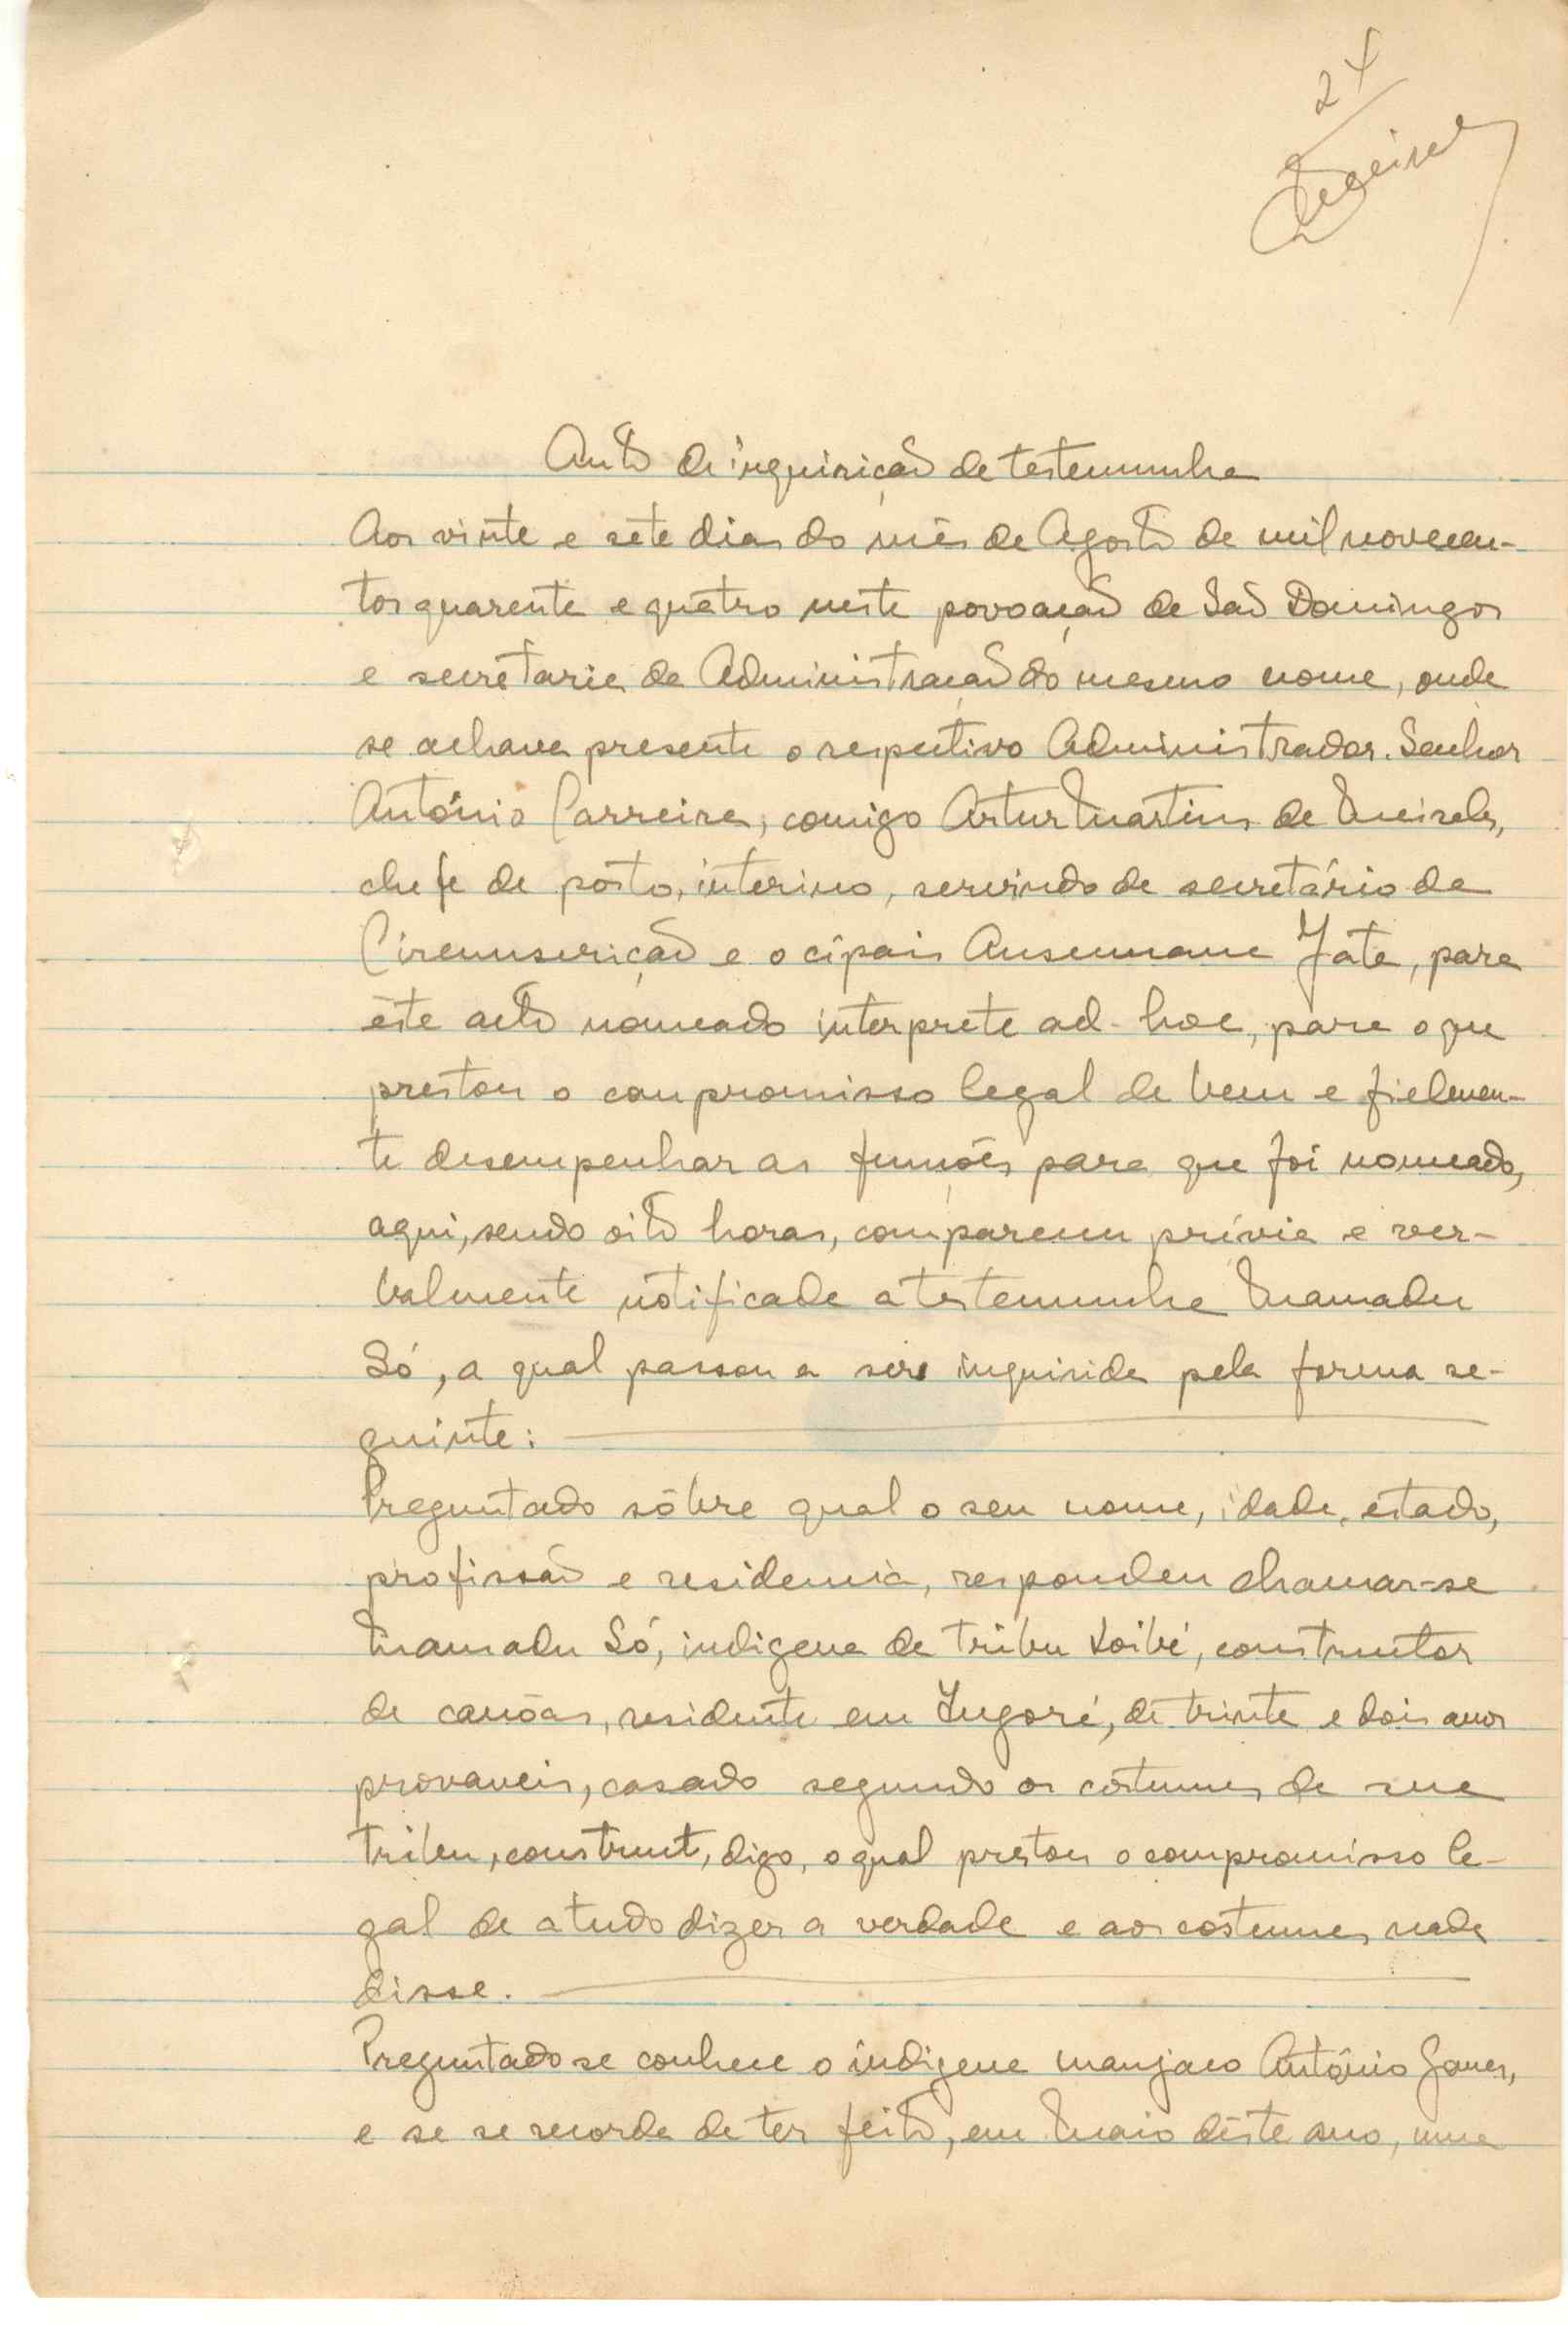 24
Auto de inquirição de testemunha
Aos vinte e sete dias do mês de Agosto de mil novecen-
tos quarenta e quatro nesta povoação de São Domingos
e secretaria da Administração do mesmo nome, onde
se achava presente o respectivo Administrador. Senhor
António Carreira, comigo Artur Martins de Meireles,
chefe de pôsto, interino, servindo de secretário da
Circunscrição e o cipais Ansumane Jate, para
êste acto nomeado interprete ad-hoc, para o que
prestou o compromisso legal de bem e fielmen-
te desempenhar as funções para que foi nomeado,
aqui, sendo oito horas, compareceu prévia e ver-
balmente notificada a testemunha Mamadu
Só, a qual passou a ser inquirida pela forma se-
guinte:
Preguntado sôbre qual o seu nome, idade, estado,
profissão e residencia, respondeu chamar-se
Mamadu Só, indigena da tribu, construtor
de canôas, residente em Ingoré, de trinta e dois anos
provaveis, casado segundo os costumes da sua
tribu, construt, digo, o qual prestou o compromisso le-
gal de a tudo dizer a verdade e aos costumes nada
disse.
Preguntado se conhece o indigena manjaco António Gomes,
e se se recorda de ter feito, em Maio dêste ano, uma